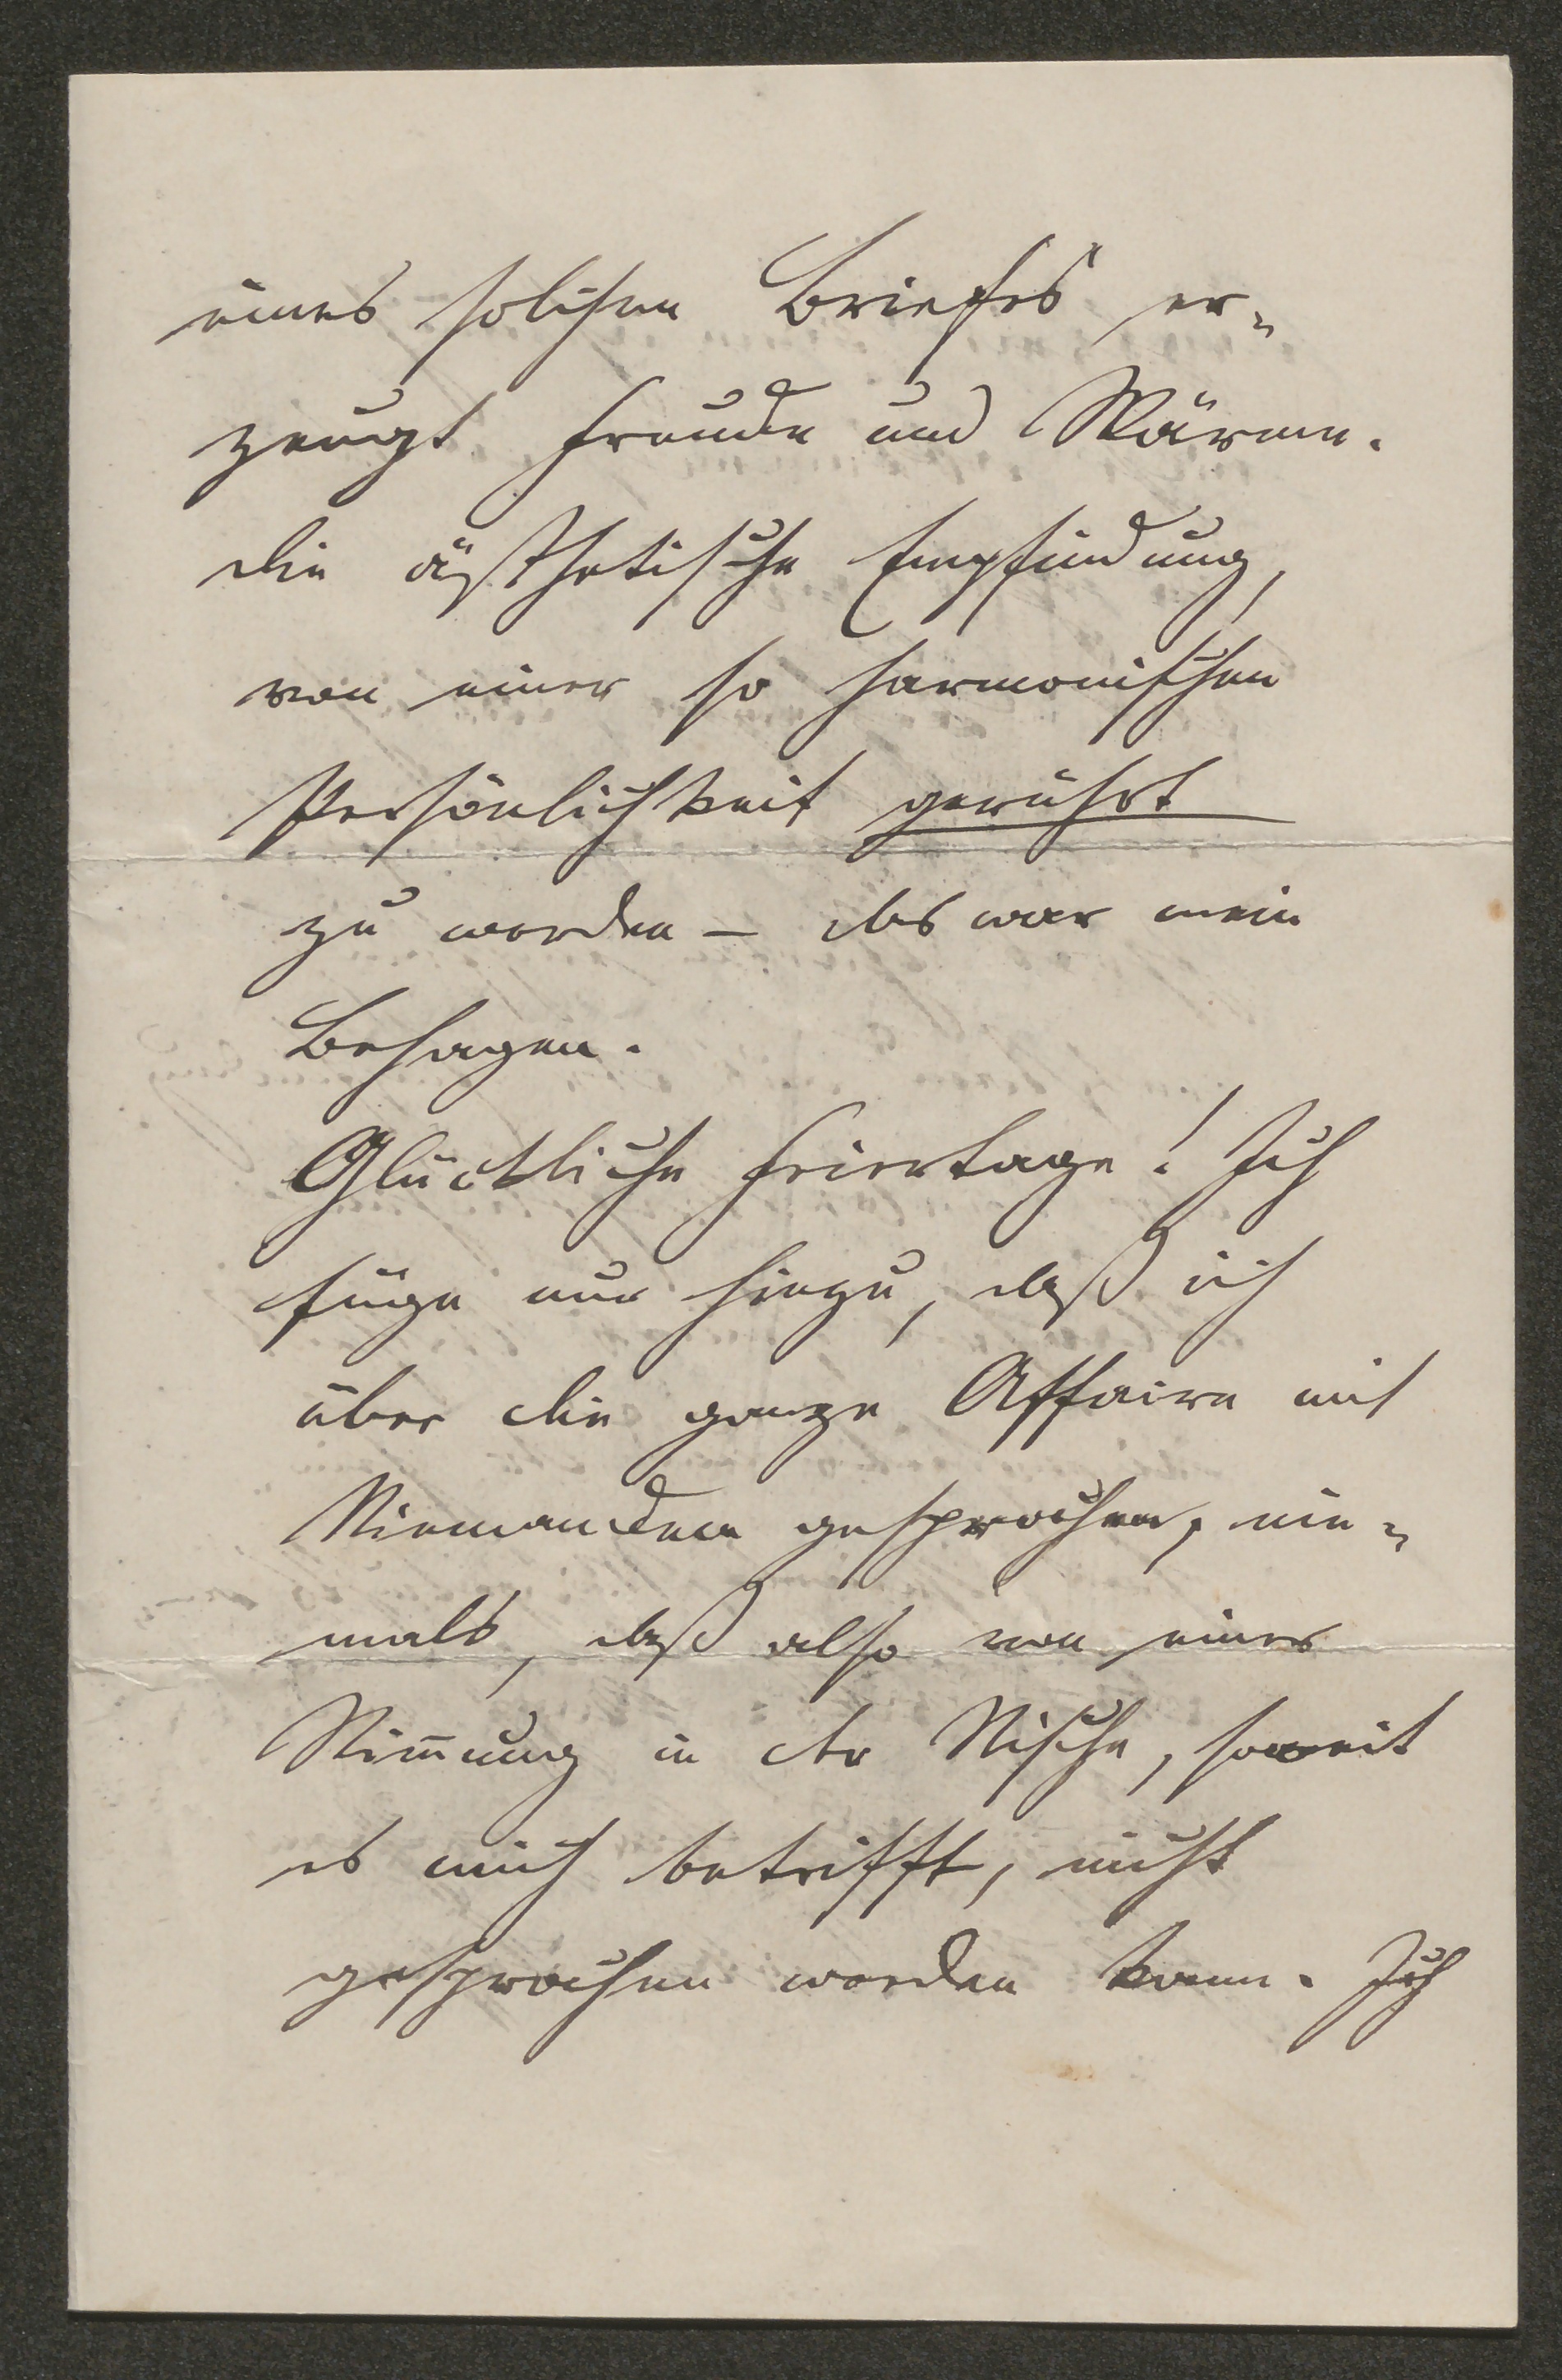 eines solchen Briefes er-
zeugt Freude und Wärme.
Die ästhetische Empfindung,
von einer so harmonischen
Persönlichkeit gerührt
zu werden – das war mein
Behagen.
Glückliche Feiertage! Ich
füge nur hinzu, daß ich
über die ganze Affaire mit
Niemandem gesprochen, nie-
mals, daß also von einer
Stimmung in der Nische, soweit
es mich betrifft, nicht
gesprochen werden kann. Ich